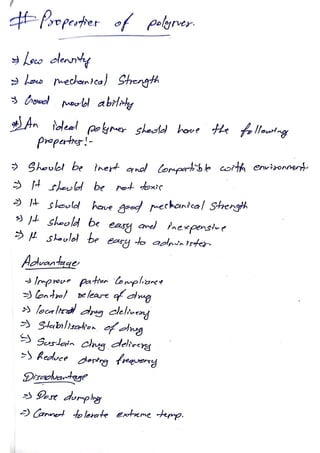 # Properties of polymer.
⇒ Low density
⇒ Low mechanical Strength
⇒ Good mould ability
* An ideal polymer should have the following
properties!-
⇒ Should be inert and Compartible with environment
⇒ It should be not toxic
⇒ It should have good mechanical strength
⇒ It should be easy and inexpensive
⇒ It should be easy to administer
Advantage
→ Improve patien Compliance
⇒ Control release of drug
⇒ localised drug delivery
⇒ Stabilisation of drug
⇒ Sustain drug delivery
⇒ Reduce dosing frequency
Disadvantage
⇒ Dose dumping
⇒ Cannot tolerate extreme temp.